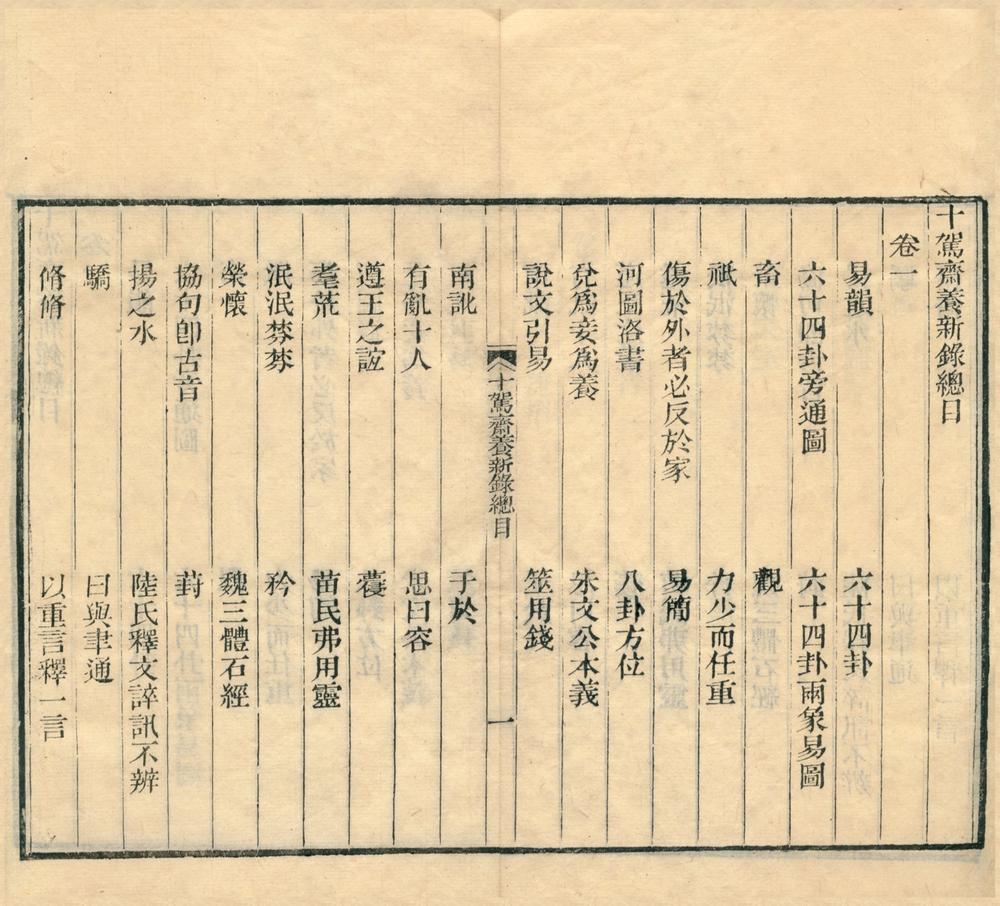 十駕齋養新錄總目
卷一
易韻　六十四卦
六十四卦旁通圖　六十四卦兩象易圖
畜　觀
祇　力少而任重
傷於外者必反於家　易簡
河圖洛書　八卦方位
兌爲妾爲養　朱文公本義
說文引易　筮用錢
十駕齋養新錄總目　一
南訛　于於
有亂十人　思曰容
遵王之誼
耄荒　苗民弗用靈
泯泯棼棼　矜
榮懷　魏三體石經
協句卽古音　葑
揚之水　陸氏釋文誶訊不辨
驕　曰與聿通
脩脩　以重言釋一言